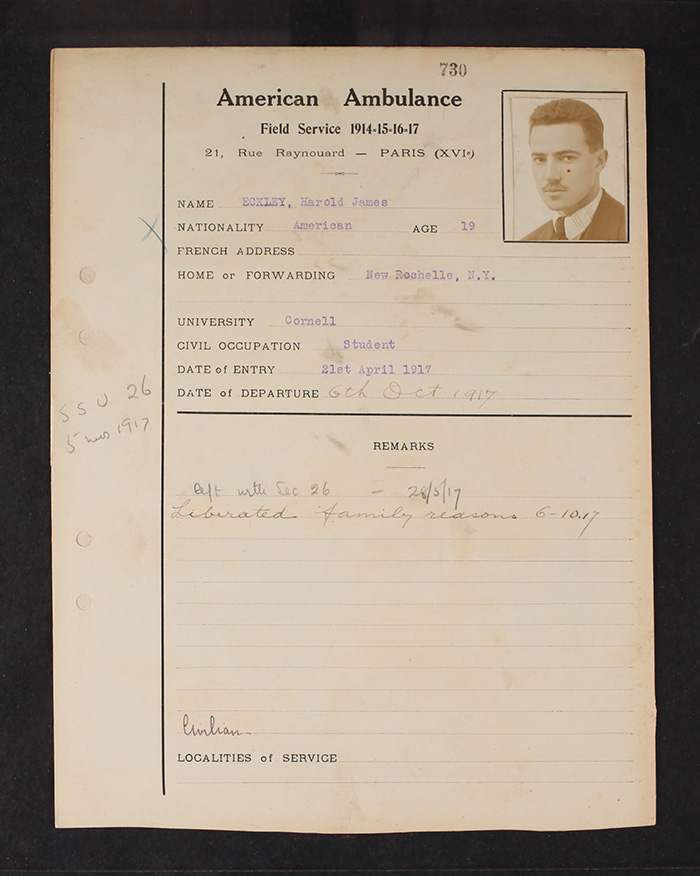 730
American Ambulance
Field Service 1914-15-16-17
21, Rue Raynouard — PARIS (XVIe)
NAME ECKLEY, Harold James
NATIONALITY American AGE 19
FRENCH ADDRESS
HOME or FORWARDING New Rochelle, N.Y.
UNIVERSITY Cornell
CIVIL OCCUPATION Student
DATE of ENTRY 21st April 1917
DATE of DEPARTURE 6th Oct 1917
SSU 26
5 mos 1917
REMARKS
left with Sec 26 — 28/5/17
Liberated family reasons 6-10.17
Civilian
LOCALITIES of SERVICE